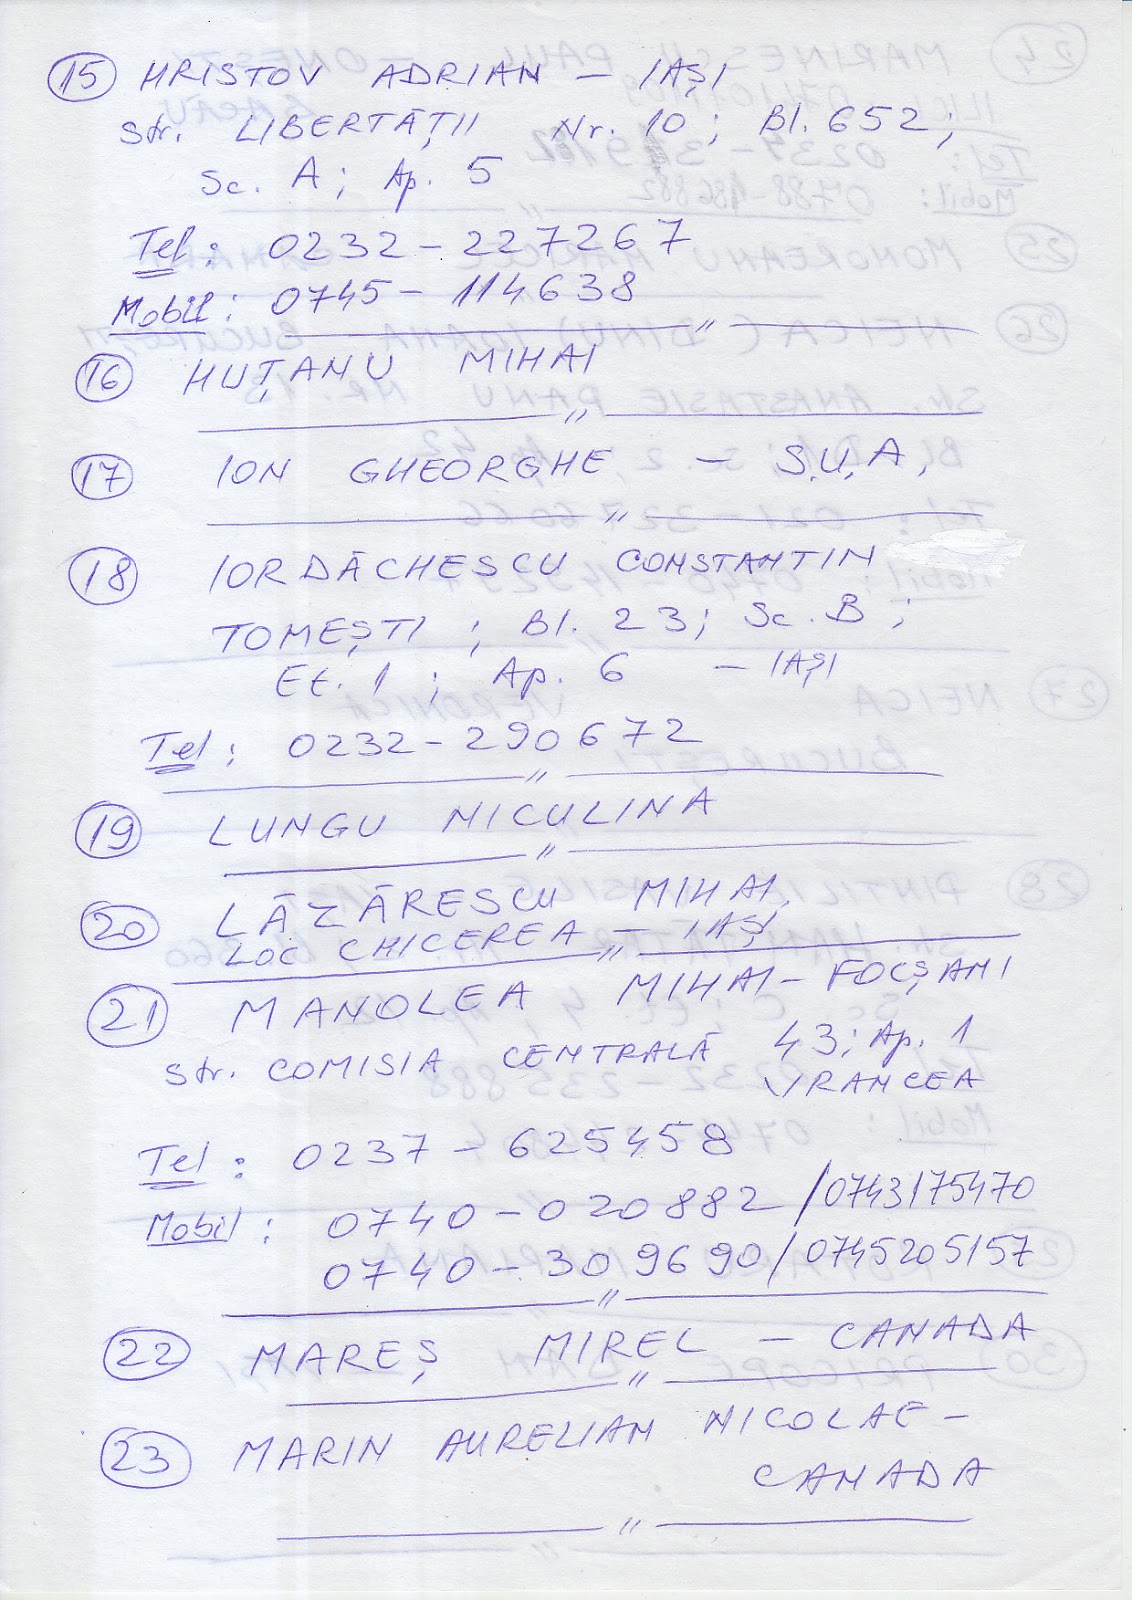 15 HRISTOV ADRIAN – IAȘI
Str. LIBERTĂȚII Nr. 10; Bl. 652;
Sc. A; Ap. 5
Tel: 0232-227267
Mobil: 0745-114638
16 HUȚANU MIHAI
17 ION GHEORGHE – S.U.A.
18 IORDĂCHESCU CONSTANTIN
TOMEȘTI; Bl. 23; Sc. B;
Et. 1; Ap. 6 – IAȘI
Tel: 0232-290672
19 LUNGU NICULINA
20 LĂZĂRESCU MIHAI
LOC CHICEREA – IAȘI
21 MANOLEA MIHAI – FOCȘANI
Str. COMISIA CENTRALĂ 43; Ap. 1
VRANCEA
Tel: 0237-625458
Mobil: 0740-020882/0743175470
0740-309690/0745205157
22 MAREȘ MIREL – CANADA
23 MARIN AURELIAN NICOLAE –
CANADA